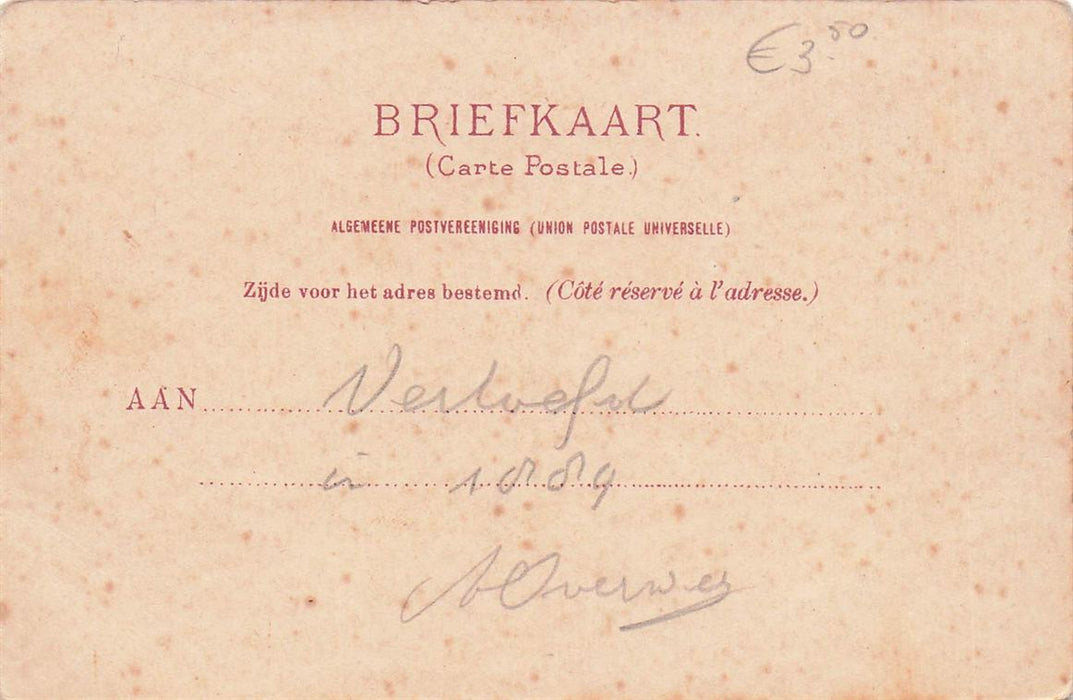 € 3.50
BRIEFKAART.
(Carte Postale.)
ALGEMEENE POSTVEREENIGING (UNION POSTALE UNIVERSELLE)
Zijde voor het adres bestemd. (Côté réservé à l'adresse.)
AAN Vertoefd
in 1889